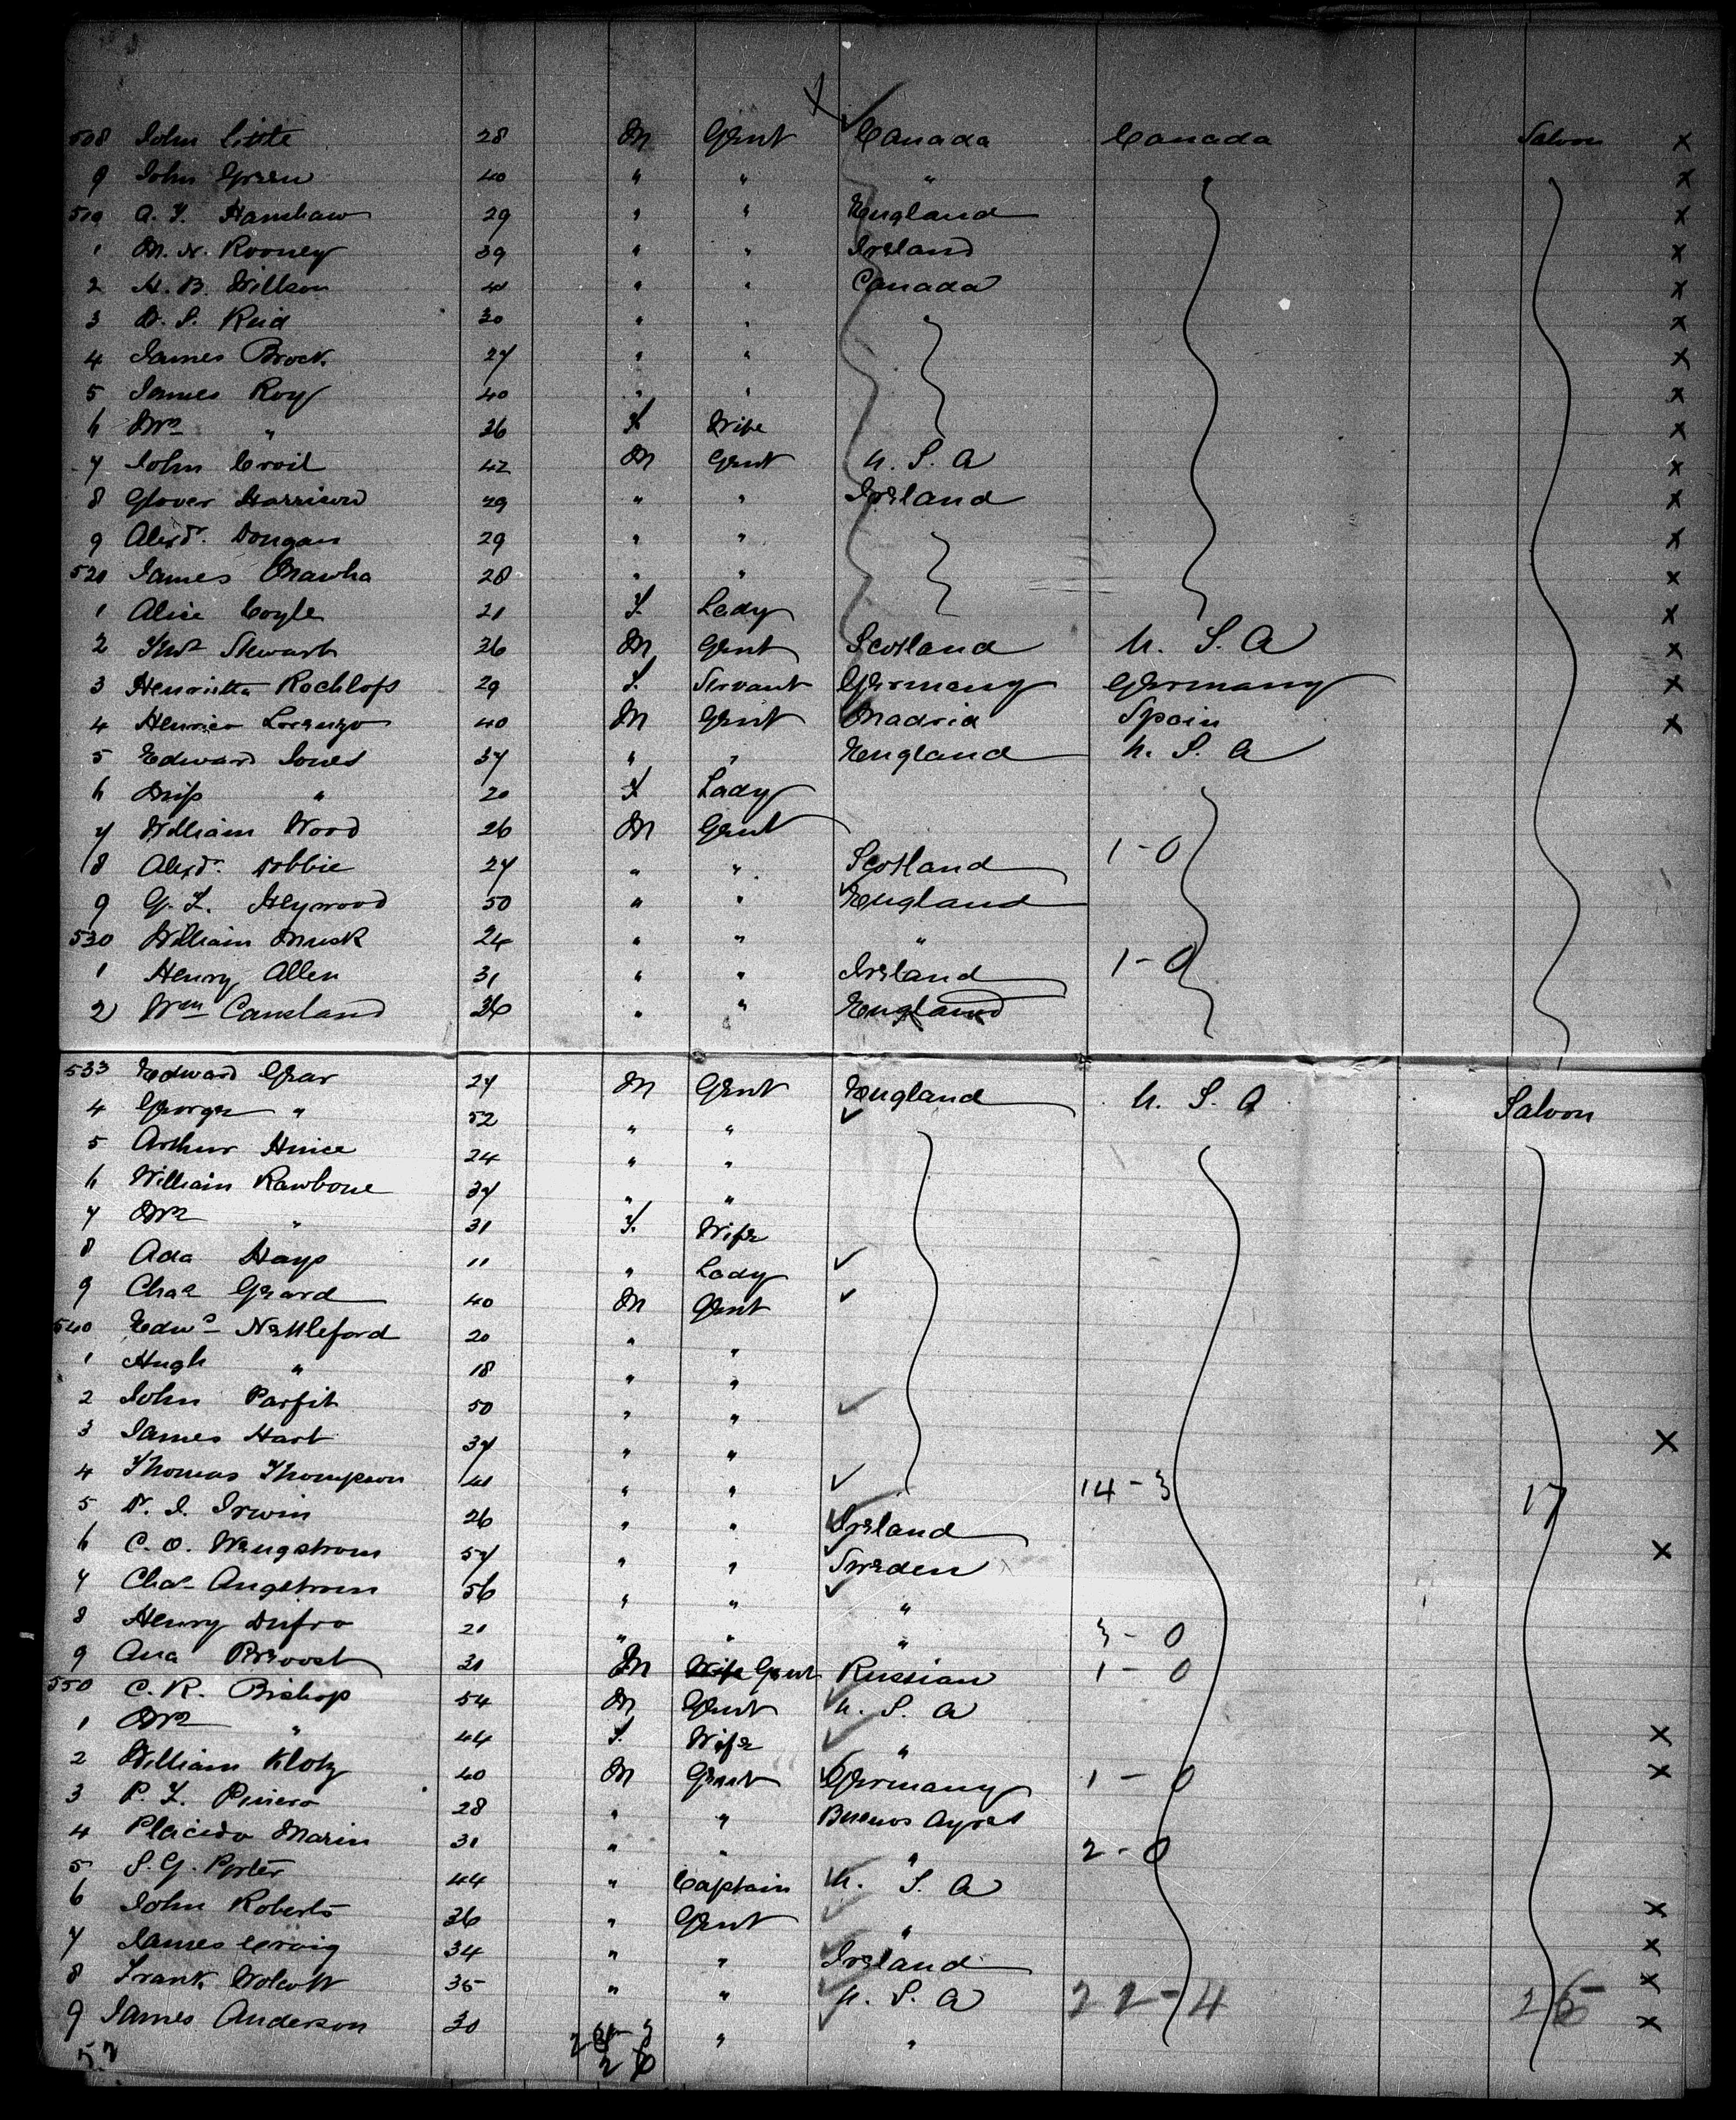 508 John Little 28 M Gent Canada Canada Saloon x
9 John Green 40 " " " x
510 A. F. Hanshaw 29 " " England x
1 M. N. Rooney 39 " " Ireland x
2 H. B. Willson 41 " " Canada x
3 D. S. Reid 30 " " x
4 James Brock 27 " " x
5 James Roy 40 " " x
6 Mrs " 36 F Wife x
7 John Croil 42 M Gent U. S. A x
8 Glover Harrison 29 " " Ireland x
9 Alexdr. Dougan 29 " " x
520 James Mawha 28 " " x
1 Alice Coyle 21 F. Lady x
2 Thos Stewart 26 M Gent Scotland U. S. A x
3 Henrietta Rochlofs 29 F. Servant Germany Germany x
4 Henrico Lorenzo 40 M Gent Madrid Spain x
5 Edward Jones 37 " " England U. S. A
6 Miss " 20 F Lady
7 William Wood 26 M Gent
8 Alexdr. Dobbie 27 " " Scotland 1-0
9 G. F. Heywood 50 " " England
530 William Musk 24 " " "
1 Henry Allen 31 " " Ireland 1-0
2 Wm Causland 36 " " England
533 Edward Gear 27 M Gent England U. S. A Saloon
4 George " 52 " "
5 Arthur Hince 24 " "
6 William Rawbone 37 " "
7 Mrs " 31 F. Wife
8 Ada Hays 11 " Lady
9 Chas Geard 40 M Gent
540 Edwd Nettleford 20 " "
1 Hugh " 18 " "
2 John Parfit 50 " "
3 James Hart 37 " " x
4 Thomas Thompson 41 " " 14-3 17
5 D. J. Irwin 26 " " Ireland
6 C. O. Wengstrom 57 " " Sweden x
7 Chas Angstrom 56 " " "
8 Henry Dufro 21 " " " 3-0
9 Ana Prevost 31 M Wife Gent Russian 1-0
550 C. R. Bishop 54 M Gent U. S. A
1 Mrs " 44 F. Wife " x
2 William Klotz 40 M Gent Germany 1-0 x
3 P. F. Pinero 28 " " Buenos Ayres
4 Placido Marin 31 " " " 2-0
5 S. G. Porter 44 " Captain U. S. A
6 John Roberts 36 " Gent " x
7 James Craig 34 " " Ireland x
8 Frank Wolcott 35 " " U. S. A 22-4 26 x
9 James Anderson 30 " " " x
52